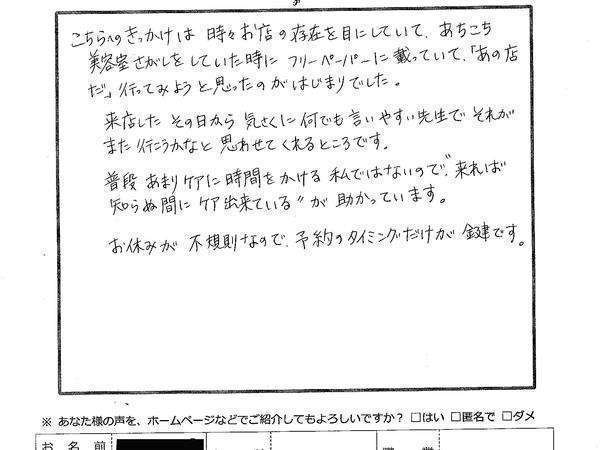 こちらへのきっかけは 時々お店の存在を目にしていて、あちこち
美容室さがしをしていた時に フリーペーパーに載っていて、「あの店
だ」行ってみようと思ったのがはじまりでした。
来店した その日から 気さくに何でも言いやすい先生で それが
また行こうかなと 思わせてくれるところです。
普段 あまりケアに時間をかける 私ではないので、"来れば
知らぬ間に ケア出来ている"が 助かっています。
お休みが 不規則なので、予約のタイミングだけが 鍵です。
※ あなた様の声を、ホームページなどでご紹介してもよろしいですか? □はい □匿名で □ダメ
お 名 前